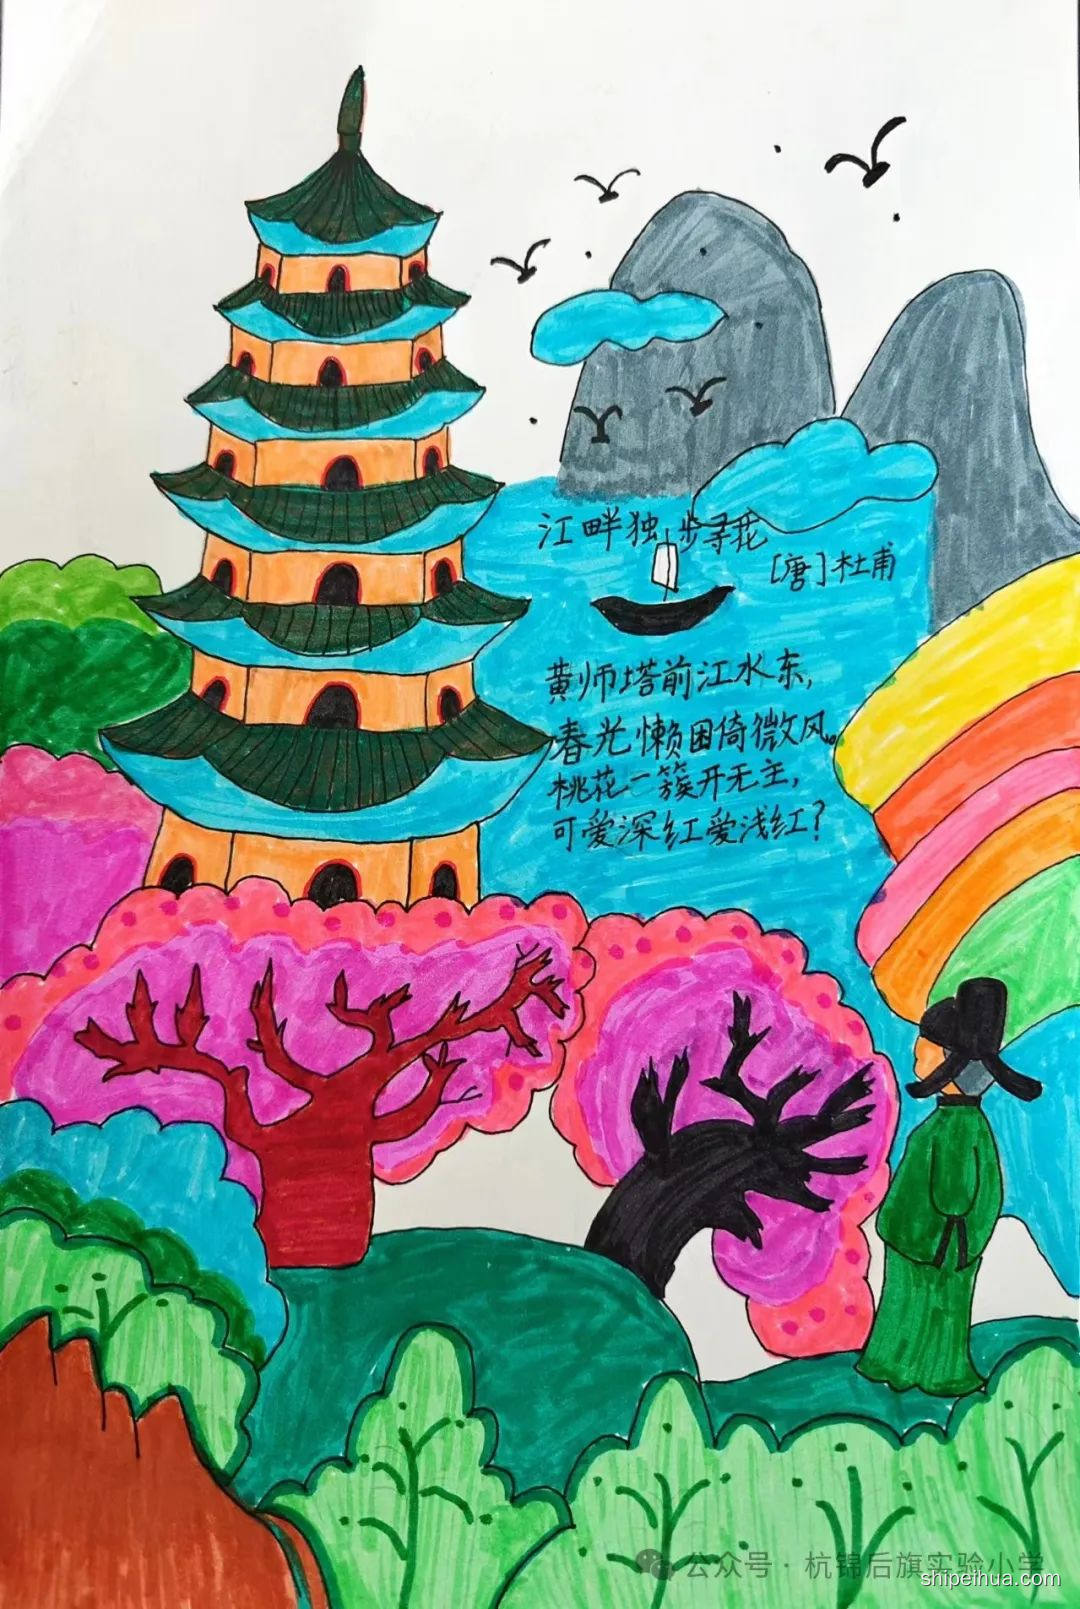 江畔独步寻花
[唐]杜甫
黄师塔前江水东,
春光懒困倚微风。
桃花一簇开无主,
可爱深红爱浅红?
公众号·杭锦后旗实验小学
shipeihua.com